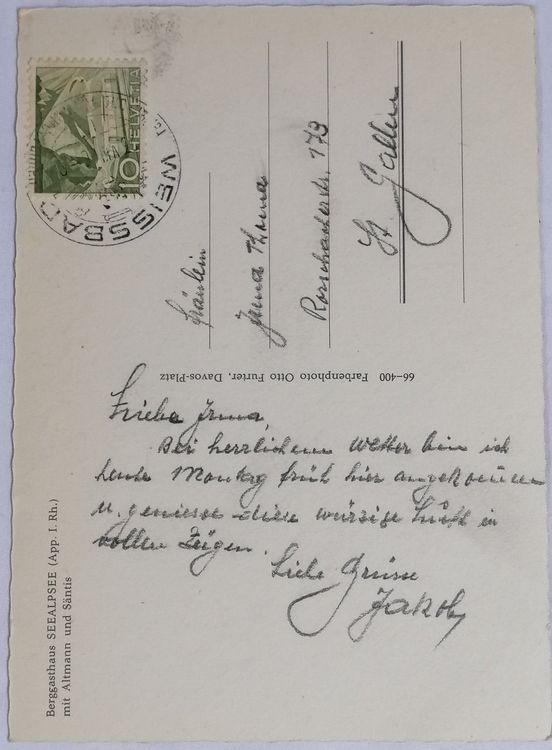 HELVETIA
10
WEISSBAD
Fräulein
Irma Thoma
Rorschacherstr. 173
St. Gallen
66—400 Farbenphoto Otto Furter, Davos-Platz
Liebe Irma,
Bei herrlichem Wetter bin ich
heute Montag früh hier angekommen
u. geniesse diese würzige Luft in
vollen Zügen.
Liebe Grüsse
Jakob
Berggasthaus SEEALPSEE (App. I. Rh.)
mit Altmann und Säntis